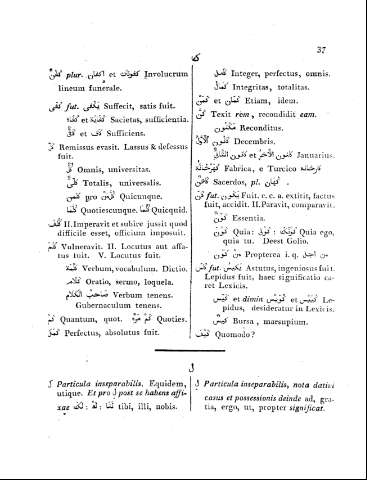 37
كفن plur. اكفان et كفونات Involucrum
lineum funerale.
كفى fut. يكفى Suffecit, satis fuit.
كفاء et كفاية Societas, sufficientia.
كاف et Sufficiens.
Remissus evasit. Lassus & defessus
fuit.
كل Omnis, universitas.
كلى Totalis, universalis.
pro Quicunque.
كلما Quotiescunque. Quicquid.
كلف II. Imperavit et subire jussit quod
difficile esset, officium imposuit.
كلم Vulneravit. II. Locutus aut affa-
tus fuit. V. Locutus fuit.
كلمة Verbum, vocabulum. Dictio.
كلام Oratio, sermo, loquela.
صاحب الكلام Verbum tenens.
Gubernaculum tenens.
كم Quantum, quot. كم مرة Quoties.
كمل Perfectus, absolutus fuit.
كامل Integer, perfectus, omnis.
كمال Integritas, totalitas.
كمان et Etiam, idem.
كن Texit rem, recondidit eam.
مكنون Reconditus.
كانون الاول Decembris.
كانون الاخر et كانون الثانى Januarius.
Fabrica, e Turcico كارخانه
كاهن Sacerdos, pl. كهان .
كان fut. يكون Fuit. c. c. a. extitit, factus
fuit, accidit. II. Paravit, comparavit.
كون Essentia.
كون Quia: Quia ego,
quia tu. Deest Golio.
من كون Propterea i. q. من اجل
كاس fut. يكيس Astutus, ingeniosus fuit.
Lepidus fuit, haec significatio ca-
ret Lexicis.
كيس et dimin كويس et كييس Le-
pidus, desideratur in Lexicis.
كيس Bursa, marsupium.
كيف Quomodo?
ل
ل Particula inseparabilis. Equidem,
utique. Et pro ل post se habens affi-
xae لك : له : لنا tibi, illi, nobis.
ل Particula inseparabilis, nota dativi
casus et possessionis deinde ad, gra-
tia, ergo, ut, propter significat.